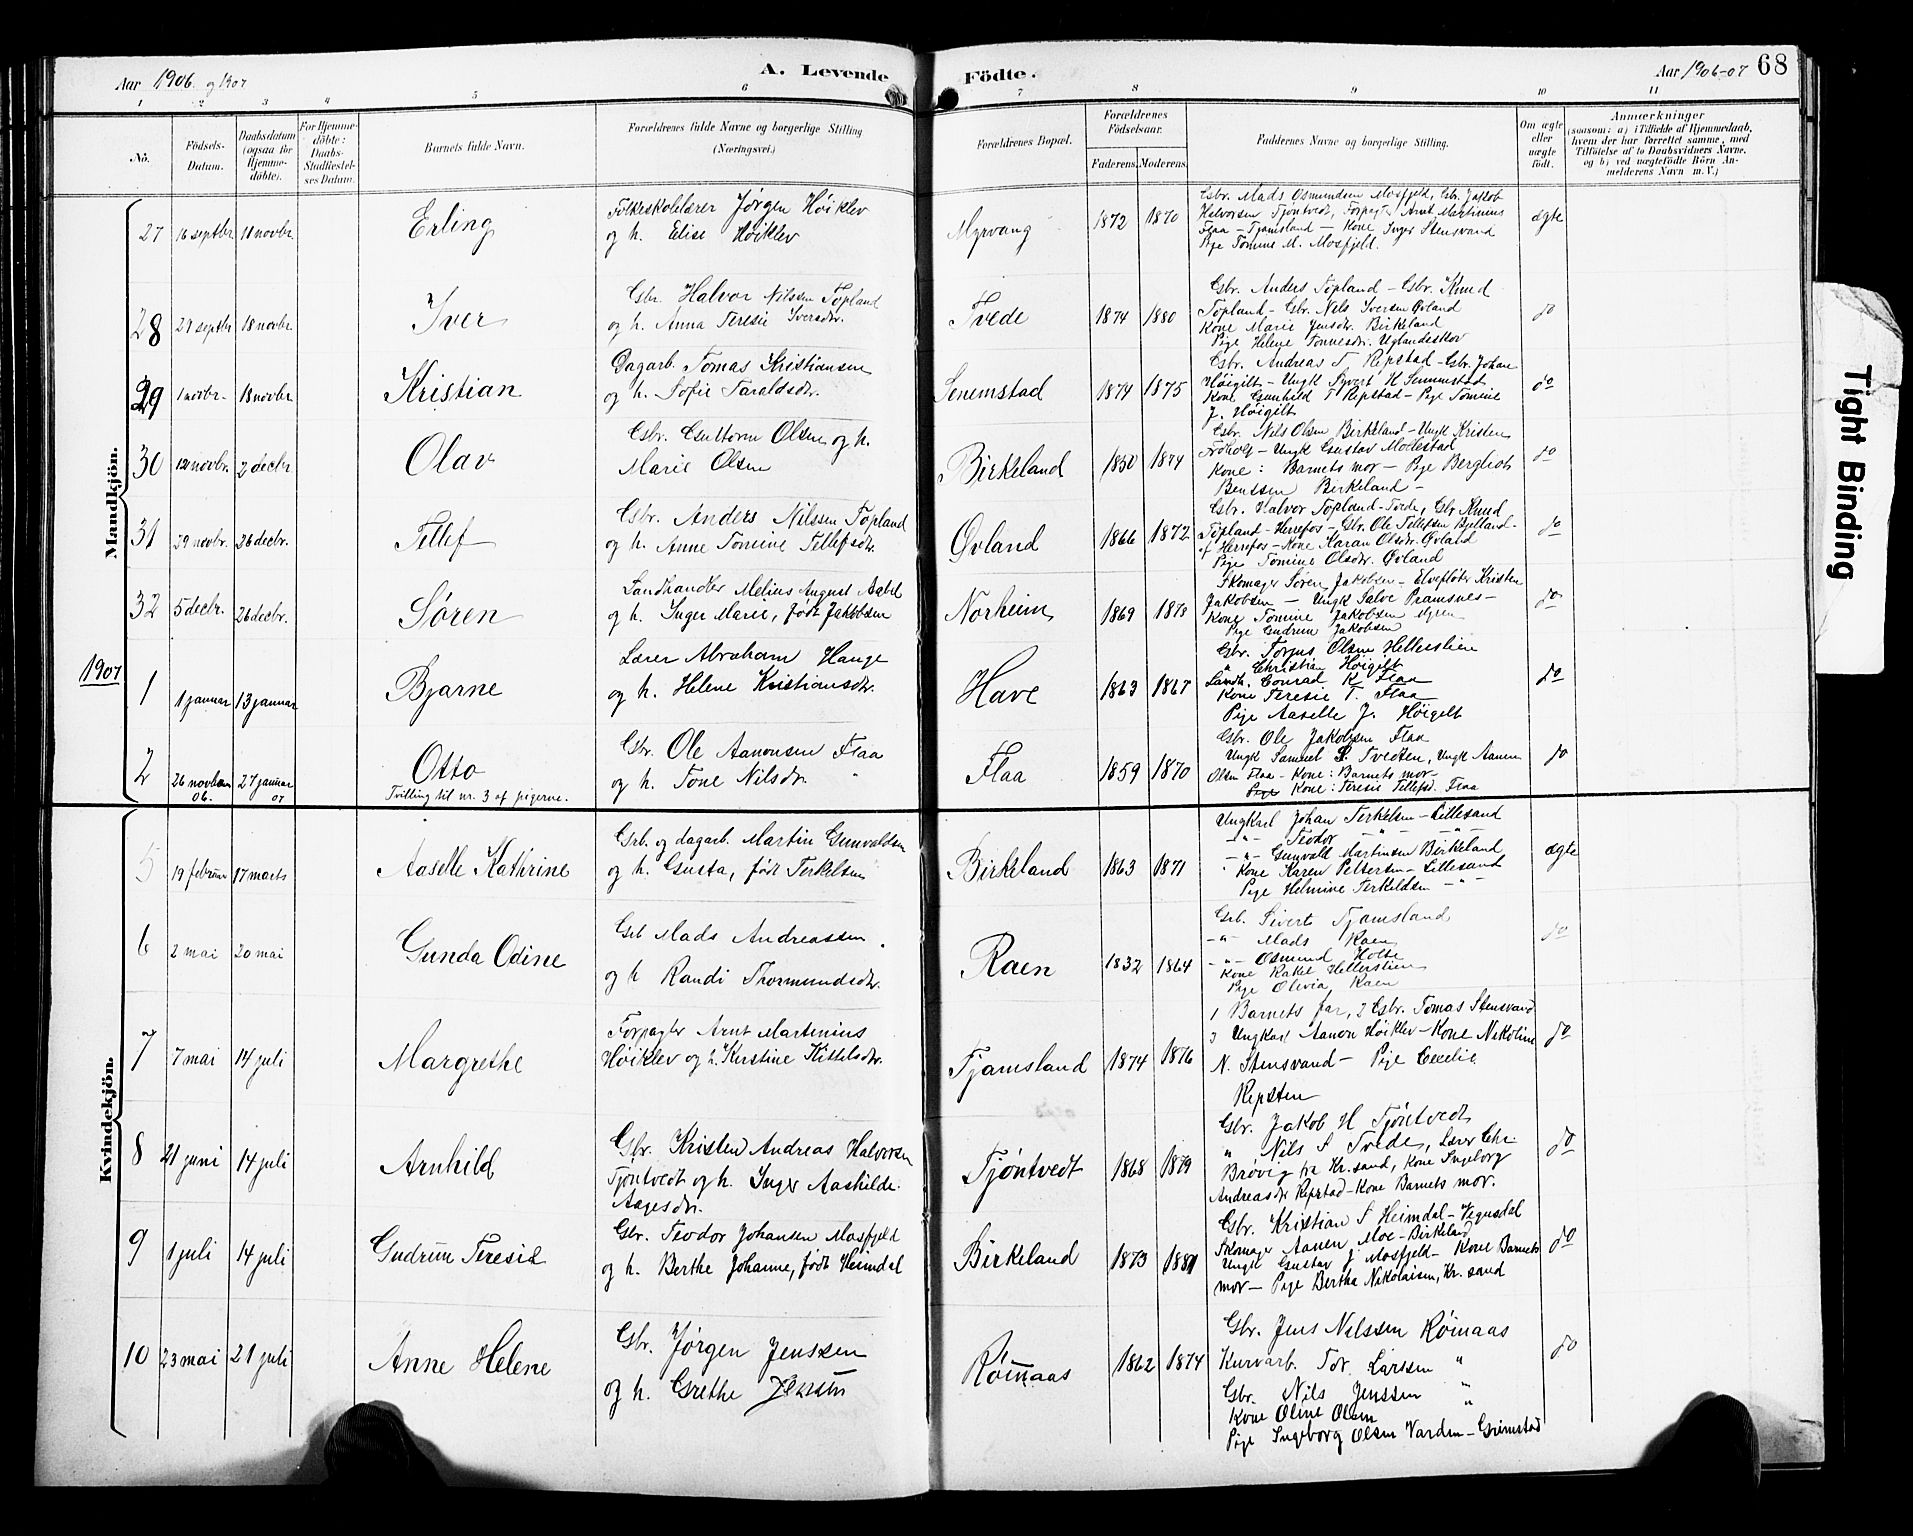 Aar 1906 og 1907
A. Levende Födte.
Aar 1906-07 68
1 2 3 4 5 6 7 8 9 10 11
No.
Födsels-
Datum.
Daabsdatum
(ogsaa for
Hjemme-
döbte).
For Hjemme-
döbte:
Daabs-
Stadfæstel-
ses Datum.
Barnets fulde Navn.
Forældrenes fulde Navne og borgerlige Stilling
(Næringsvei.)
Forældrenes Bopæl.
Forældrenes
Födselsaar.
Faderens. Moderens.
Faddernes Navne og borgerlige Stilling.
Om ægte
eller
uægte
födt.
Anmærkninger
(saasom: a) i Tilfælde af Hjemmedaab,
hvem der har forrettet samme, med
Tilföielse af to Daabsvidners Navne,
og b) ved uægtefödte Börn An-
melderens Navn m. V.)
Mandkjön.
27 16 septbr 11 novbr. Erling
Folkeskolelærer Jørgen Høiklev
og h. Elise Høiklev
Myrvang 1872 1870
Gbr. Mads Osmundsen Mosfjeld, Gbr. Jakob
Halvorsen Tjöntvedt, Forpagt. Arnt Martinius
Flaa – Tjamsland – Kone Inger Stensvand
Pige Tomine M. Mosfjeld.
ægte
28 27 septbr 18 novbr. Iver
Gbr. Halvor Nilssen Topland
og h. Anna Teresie Iversdtr.
Tvede 1874 1880
Gbr. Anders Topland – Gbr. Knud
Topland – Gbr. Nils Iversen Øvland
Kone Marie Jensdtr. Birkeland
Pige Helene Tonnesdtr. Uglandeskov
do
29 1 novbr. 18 novbr Kristian
Dagarb. Tomas Kristiansen
og h. Sofie Taraldsdtr.
Senemstad 1874 1875
Gbr. Andreas T Repstad – Gbr. Johan
Høigilt – Ungk. Syvert H Senumstad
Kone Gunhild T Repstad – Pige Tomine
J. Høigilt
do
30 12 novbr. 2 decbr Olav
Gbr. Guttorm Olsen og h.
Marie Olsen
Birkeland 1850 1874
Gbr. Nils Olsen Birkeland – Ungk Kristen
Froholt – Ungk Gustav Mollestad
Kone: Barnets mor – Pige Bergliot
Bentsen Birkeland –
do
31 29 novbr. 26 decbr. Tellef
Gbr. Anders Nilssen Topland
og h. Anne Tomine Tellefsdtr.
Øvland 1866 1872
Gbr. Halvor Topland – Tvede, Gbr Knud
Topland – Herrefos – Gbr. Ole Tellefsen Bjelland
af Herrefos – Kone Karan Olsdtr. Øvland
Pige Tomine Olsdtr. Øvland
do
32 5 decbr. 26 decbr. Søren
Landhandler Melius August Aabel
og h. Inger Marie, født Jakobsen
Norheim 1869 1873
Skomager Søren Jakobsen – Elvefløter Kristen
Jakobsen – Ungk Salve Pramsnes –
Kone Tomine Jakobsen Myren
Pige Gudrun Jakobsen
do
1907
1 1 januar 13 januar Bjarne
Lærer Abraham Hauge
og h. Helene Kristiansdtr.
Have 1863 1867
Gbr. Torjus Olsen Hellerslien
" Christian Høigilt
Landh. Conrad K Flaa
Kone Teresie T. Flaa
Pige Aaselle J. Høigilt
do
2 26 novbem 06. 27 januar 07 Otto
Tvilling til nr. 3 af pigerne.
Gbr. Ole Aanonsen Flaa
og h. Tone Nilsdtr. "
Flaa 1859 1870
Gbr. Ole Jakobsen Flaa
Ungk Samuel S. Tvedten, Ungk Aanen
Olsen Flaa – Kone: Barnets mor –
Pige Kone: Teresie Tellefsd. Flaa
do
Kvindekjön.
5 19 februar 17 marts Aaselle Kathrine
Grb. og dagarb. Martin Gunvaldsen
og h. Gusta, født Terkelsen
Birkeland 1863 1871
Ungkarl Johan Terkelsen – Lillesand
–"– Teodor –"– –"–
–"– Gunvald Martinsen Birkeland
Kone Karen Pettersen – Lillesand
Pige Helmine Terkeldsen –"–
ægte
6 2 mai 20 mai Gunda Odine
Grb Mads Andreassen
og h Randi Thormundsdtr.
Raen 1832 1864
Grb. Sivert Tjamsland
–"– Mads Raen
–"– Osmund Holte
Kone Rakel Hellerslien
Pige Olivia Raen
do
7 7 mai 14 juli Margrethe
Forpagter Arnt Martinius
Høiklev og h. Kirstine Kittelsdtr.
Tjamsland 1874 1876
1 Barnets far, 2 Gbr. Tomas Stensvand
3 Ungkarl Aanon Høiklev – Kone Nikoline
N. Stensvand – Pige Cecelie
Repsten
do
8 21 juni 14 juli Arnhild
Gbr. Kristen Andreas Halvorsen
Tjöntvedt og h. Inger Aashilde
Aagesdtr.
Tjöntvedt 1868 1879
Gbr. Jakob H Tjöntvedt
" Nils S Tvede, Lærer Chr.
Brøvig fra Kr.sand, Kone Ingeborg
Andreasdtr Repstad – Kone Barnets mor.
do
9 1 juli 14 juli Gudrun Teresie
Gbr. Teodor Johansen Mosfjeld
og h. Berthe Johanne, født Heimdal
Birkeland 1873 1881
Gbr. Kristian S Heimdal – Vegusdal
Skomager Aanen Moe – Birkeland
Ungk Gustav J Mosfjeld – Kone Barnets
mor – Pige Bertha Nikolaisen, Kr.sand
do
10 23 mai 21 juli Anne Helene
Gbr. Jørgen Jenssen
og h. Grethe Jensen
Røinaas 1862 1874
Gbr. Jens Nilssen Røinaas
Kurvarb. Tor. Larssen "
Gbr. Nils Jenssen "
Kone Oline Olsen "
Pige Ingeborg Olsen Varden – Grimstad
do
Tight Binding